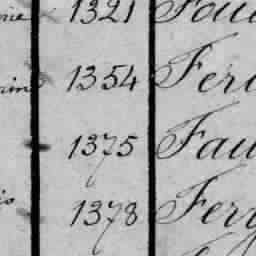 1321 Fau
1354 Fer
1375 Fau
1378 Ferg